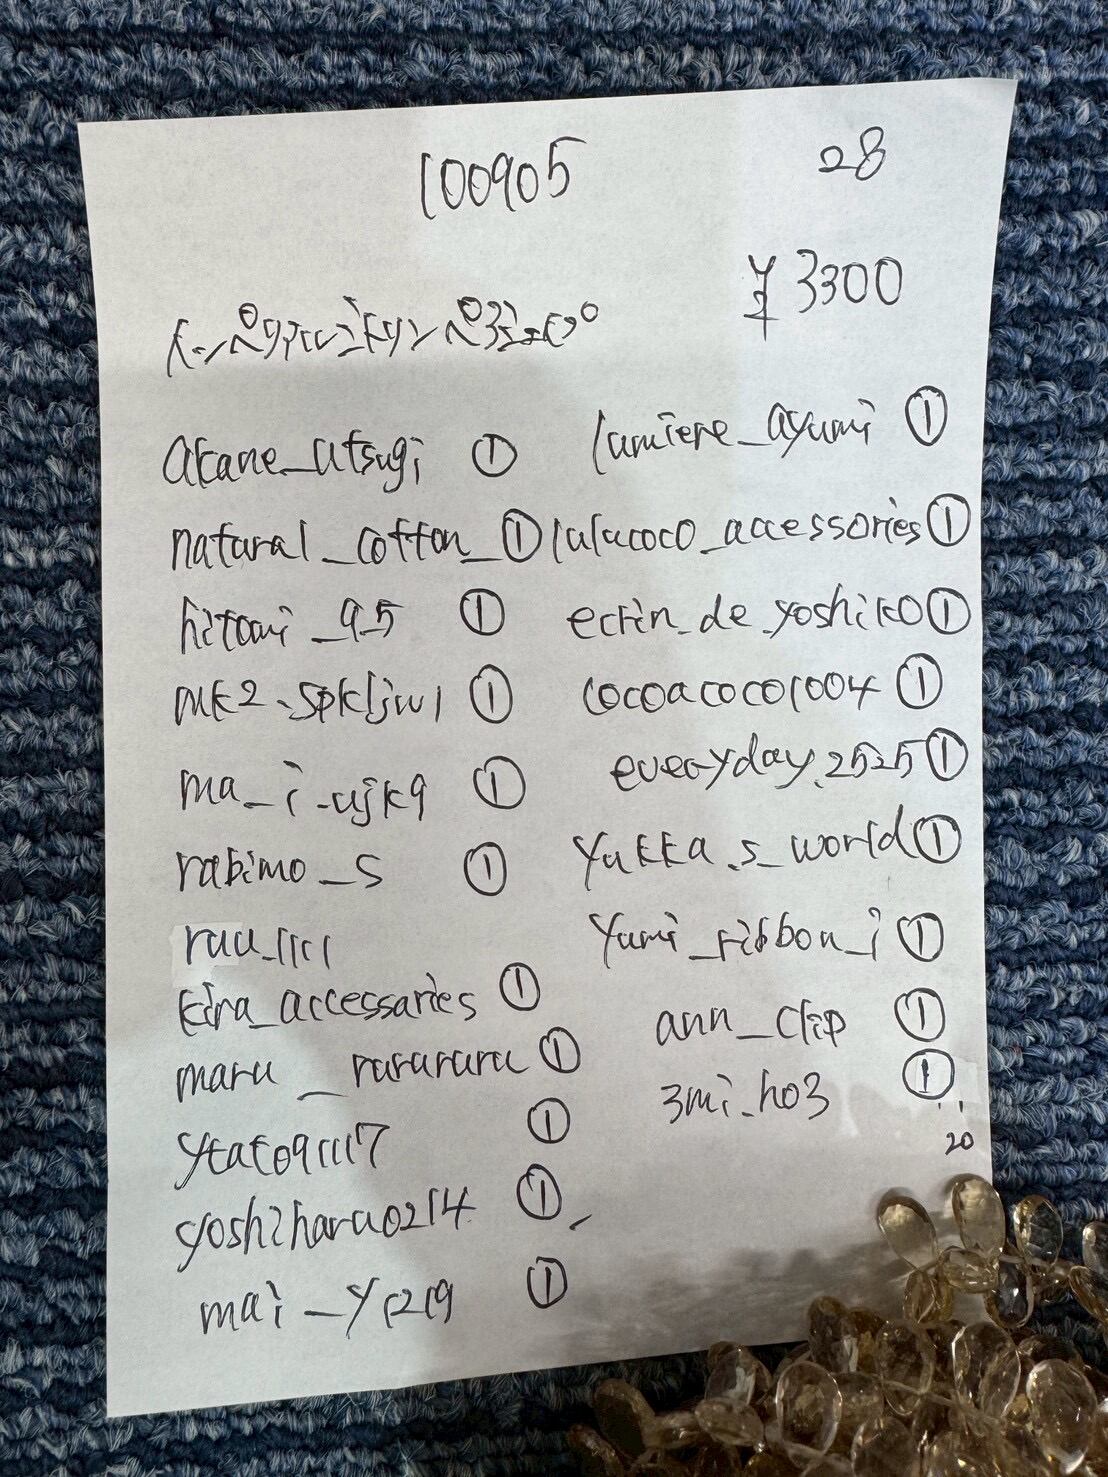 100905
28
¥3300
akane_utsugi ①
natural_cotton_ ①
hitomi_95 ①
mk2.spkljw1 ①
ma_i_ujk9 ①
rabimo_s ①
ruu_1111
kira_accessaries ①
maru__rurururu ①
ytato91117 ①
yoshiharu0214 ①
mai_y1219 ①
lumiere_ayumi ①
lulucoco_accessories ①
ecrin_de_yoshiko ①
cocoacoco1004 ①
everyday.2525 ①
yukka.s_world ①
yumi_ribbon_i ①
ann_clip ①
3mi_ho3 ①
20